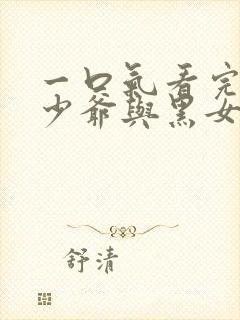 一口氣看完
少爺與黑女
舒清